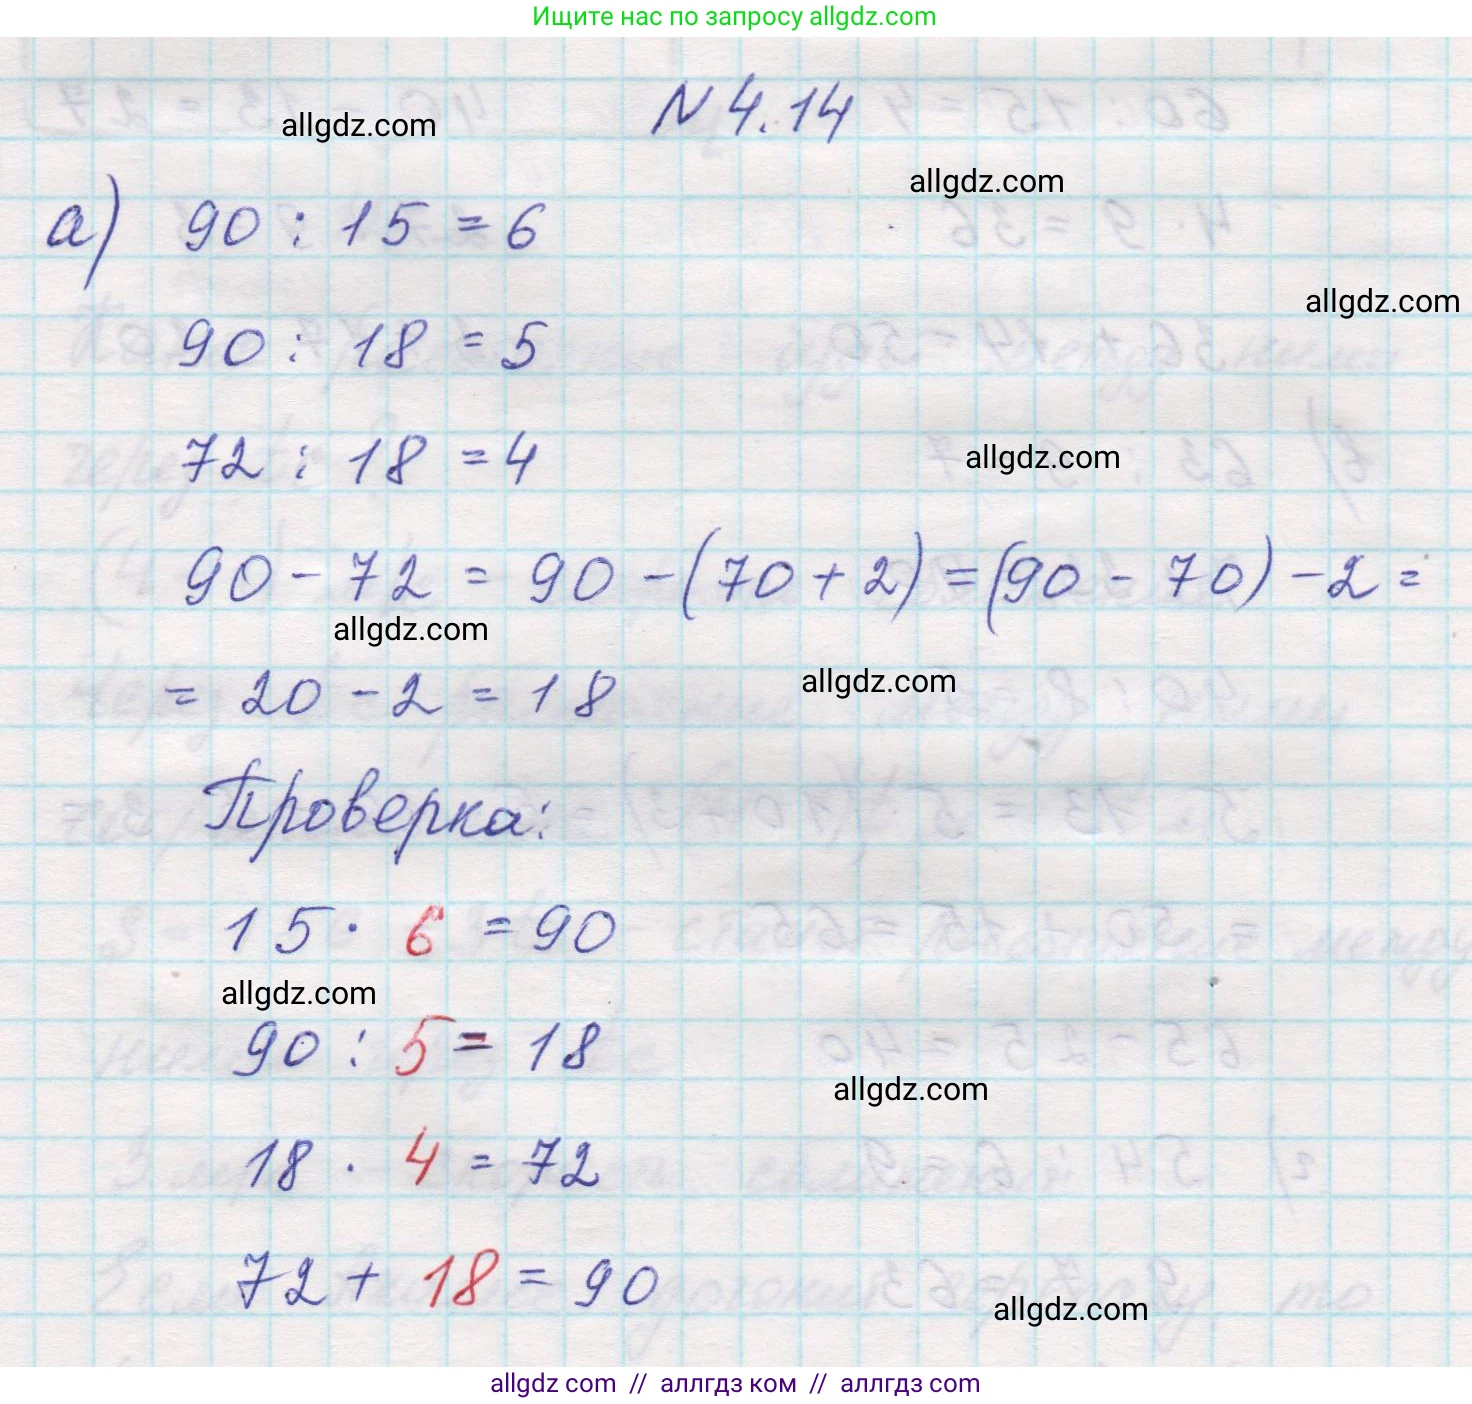 Ищите нас по запросу allgdz.com
N 4.14
allgdz.com
allgdz.com
а) 90 : 15 = 6
allgdz.com
90 : 18 = 5
72 : 18 = 4
allgdz.com
90 - 72 = 90 - (70 + 2) = (90 - 70) - 2 =
allgdz.com
= 20 - 2 = 18
allgdz.com
Проверка:
15 · 6 = 90
allgdz.com
90 : 5 = 18
allgdz.com
18 · 4 = 72
72 + 18 = 90
allgdz.com
allgdz com // аллгдз ком // аллгдз com